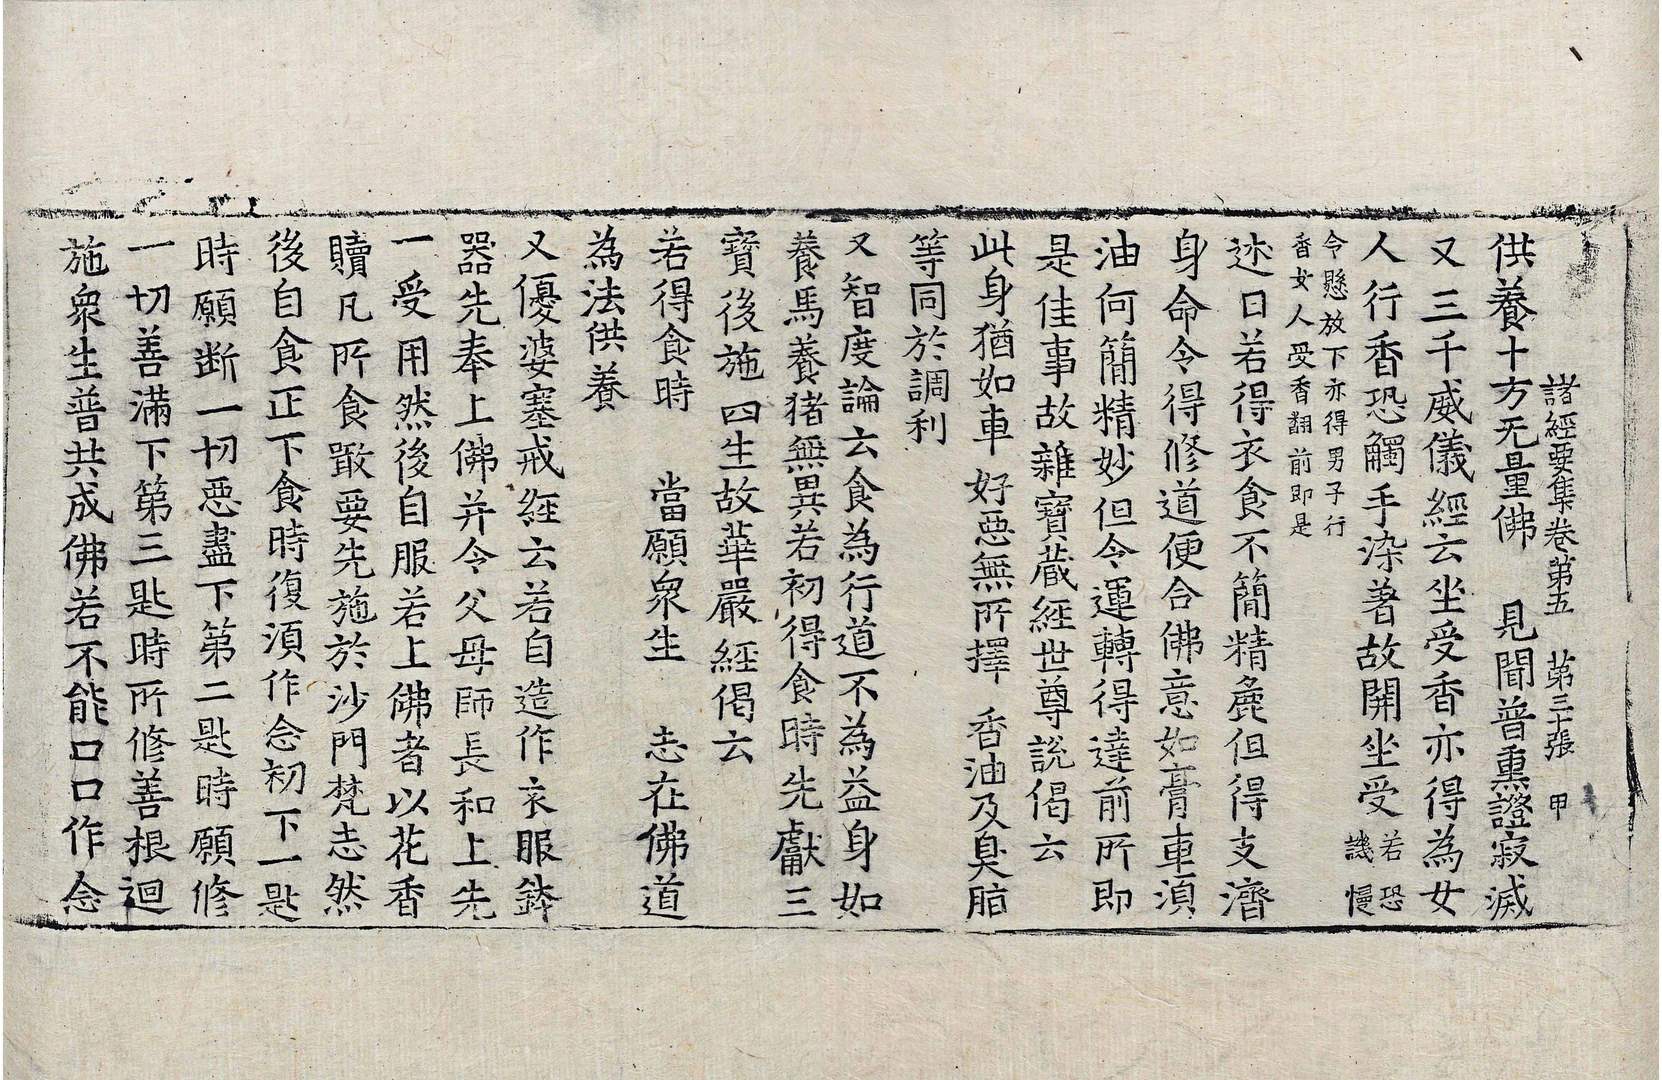 諸經要集卷第五　第三十張　甲
供養十方无量佛　見聞普熏證寂滅
又三千威儀經云坐受香亦得為女
人行香恐觸手染著故開坐受若恐譏慢
令懸放下亦得男子行
香女人受香翻前即是
述曰若得衣食不簡精麁但得支濟
身命令得修道便合佛意如膏車須
油何簡精妙但令運轉得達前所即
是佳事故雜寶藏經世尊說偈云
此身猶如車　好惡無所擇　香油及臭脂
等同於調利
又智度論云食為行道不為益身如
養馬養猪無異若初得食時先獻三
寶後施四生故華嚴經偈云
若得食時　當願衆生　志在佛道
為法供養
又優婆塞戒經云若自造作衣服鉢
器先奉上佛并令父母師長和上先
一受用然後自服若上佛者以花香
贖凡所食噉要先施於沙門梵志然
後自食正下食時復須作念初下一匙
時願断一切惡盡下第二匙時願修
一切善滿下第三匙時所修善根迴
施衆生普共成佛若不能口口作念